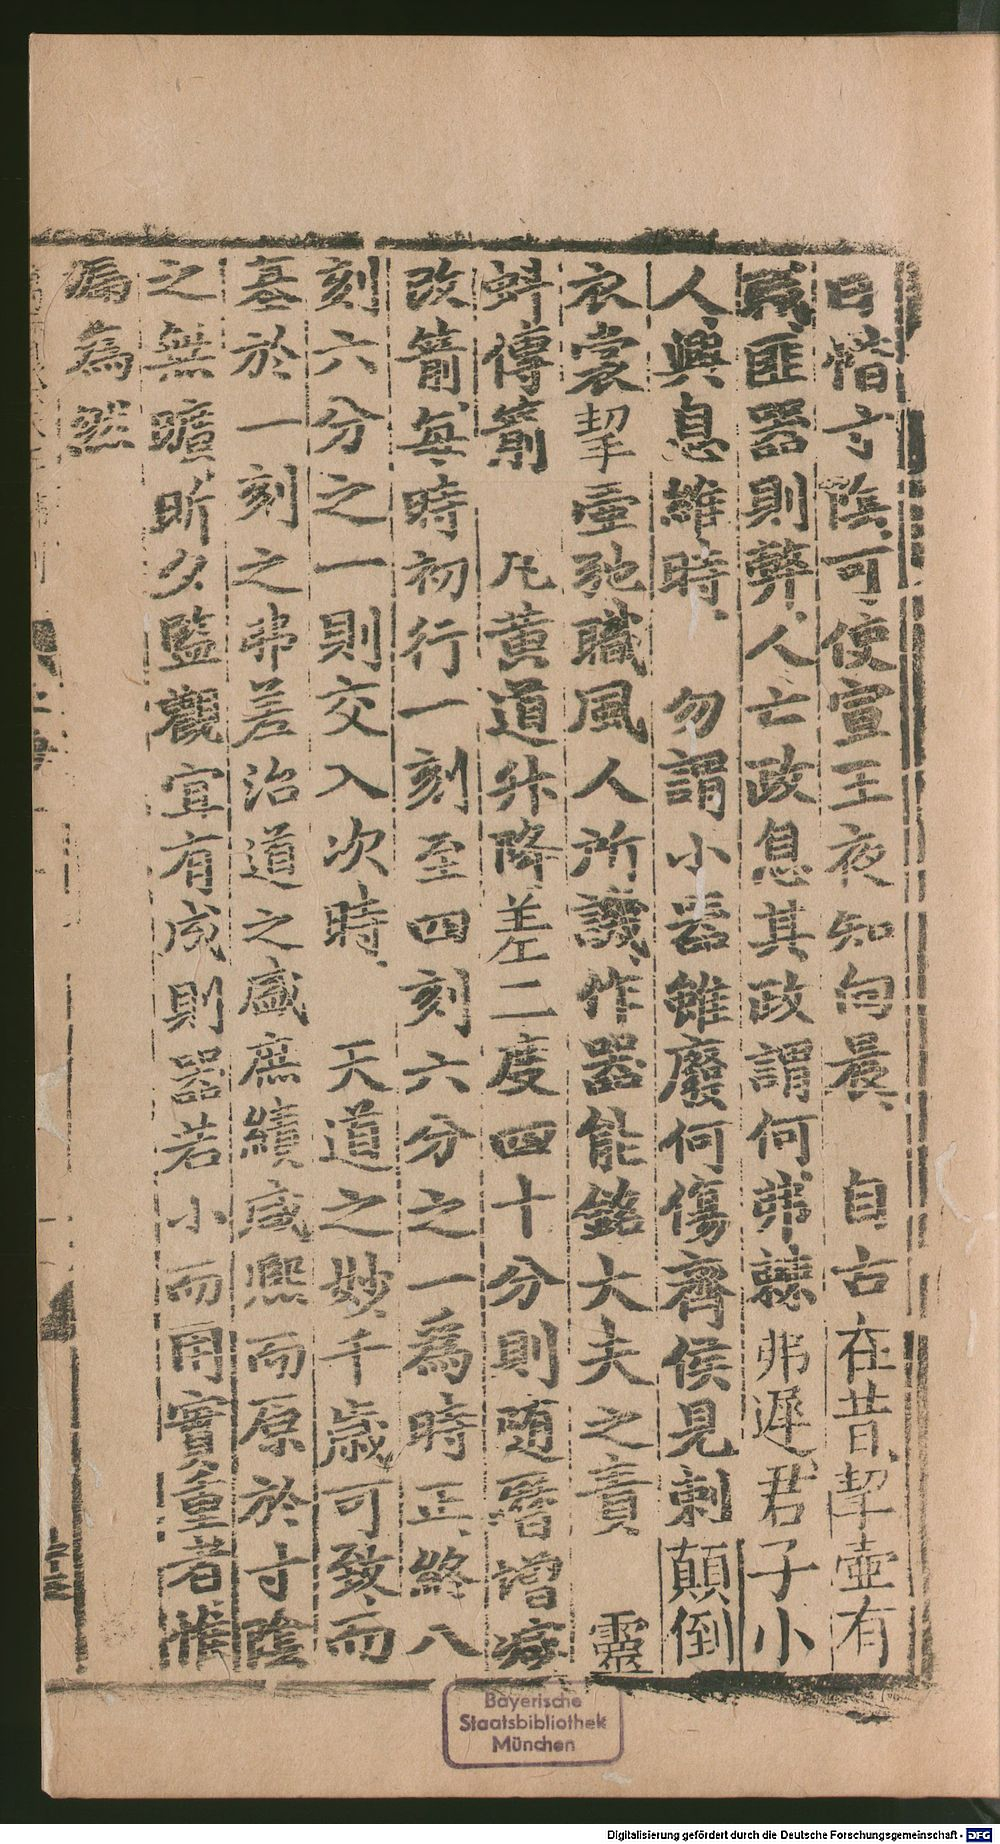 日惜寸陰可使宣王夜知向晨 自古在昔挈壺有
職匪器則弊人亡政息其政謂何弗棘弗遲君子小
人興息維時 勿謂小器雖廢何傷齊侯見刺顛倒
衣裳挈壺弛職風人所譏作器能銘大夫之責 靈
虯傳箭 凡黃道升降差二度四十分則随曆增减
改箭每時初行一刻至四刻六分之一為時正終八
刻六分之一則交入次時 天道之妙千歲可致而
基於一刻之弗差治道之盛庶績咸熙而原於寸陰
之無曠昕夕監觀宜有成則器若小而用實重者惟
漏為然
Bayerische
Staatsbibliothek
München
Digitalisierung gefördert durch die Deutsche Forschungsgemeinschaft - DFG